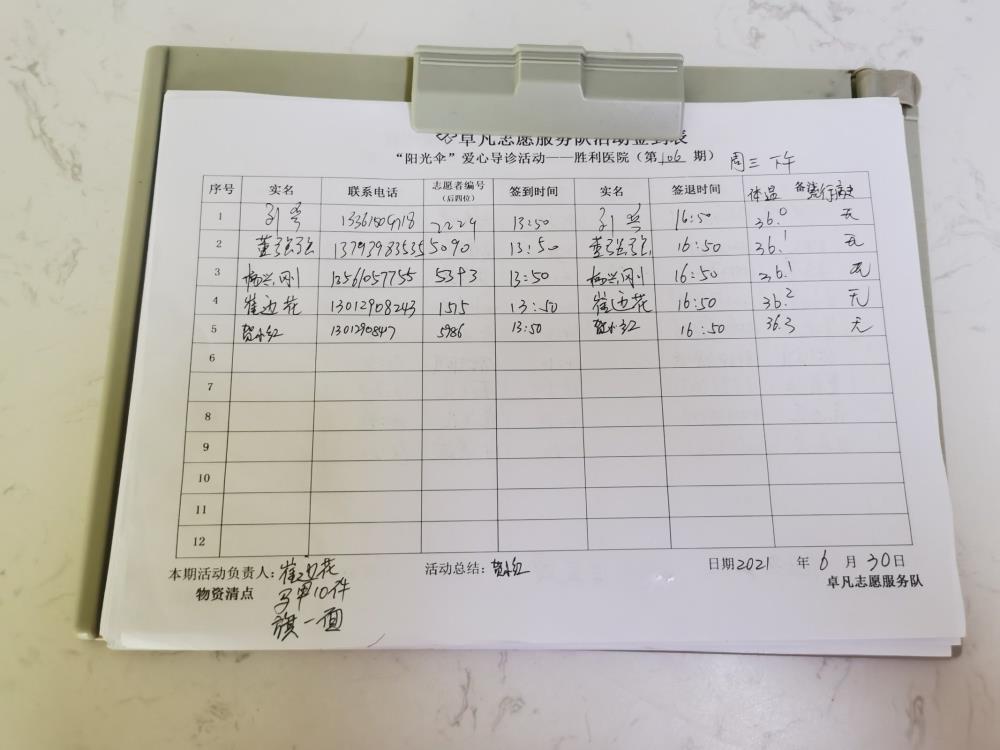 卓凡志愿服务队活动签到表
“阳光伞”爱心导诊活动——胜利医院（第106期） 周三 下午
序号 实名 联系电话 志愿者编号（后四位） 签到时间 实名 签退时间 体温 备 流行病史
1 2224 13:50 16:50 36.0 无
2 董 13793983535 5090 13:50 董 16:50 36.1 无
3 杨兴刚 13561057755 5393 13:50 杨兴刚 16:50 36.1 无
4 崔迎花 13012908243 1515 13:50 崔迎花 16:50 36.2 无
5 贺小红 5986 13:50 贺小红 16:50 36.3 无
6
7
8
9
10
11
12
本期活动负责人：崔迎花 活动总结：贺小红 日期2021 年 6 月 30日
物资清点 马甲10件 卓凡志愿服务队
旗一面